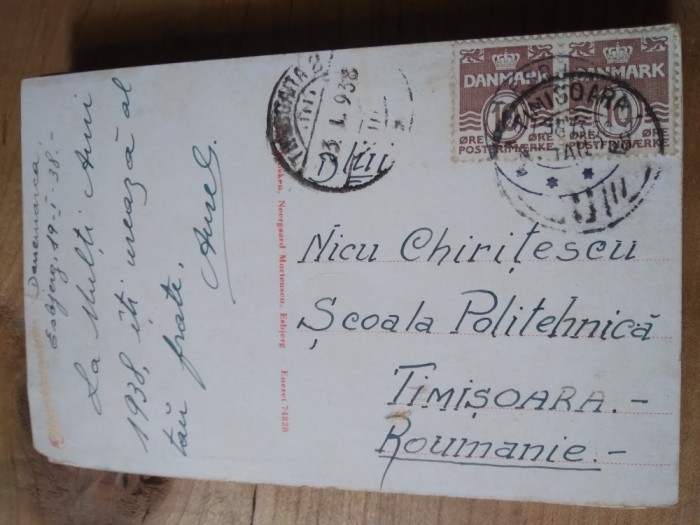 Danemarca.
Esbjerg, 19-I-38.-
La Mulți Ani
1938, iti urează al
tău frate,
Aurel.
Neergaard Mortensen, Esbjerg Eneret 74828
DANMARK
DANMARK
10
10
ØRE ØRE
POSTFRIMÆRKE
ØRE ØRE
POSTFRIMÆRKE
TIMISOARA
23 I. 938
TIMISOARA
Dlui
Nicu Chirițescu
Școala Politehnică
TIMIȘOARA.-
Roumanie.-